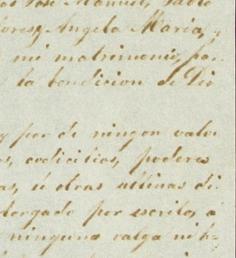 José Manuel, Pablo
Dolores, Angela Maria,
mi matrimonio, par
la bendicion de Dio
y por de ningun valor
s, codicilios, poderes
as, ú otras ultimas di
torgado por escrito, á
ninguna valga ni h